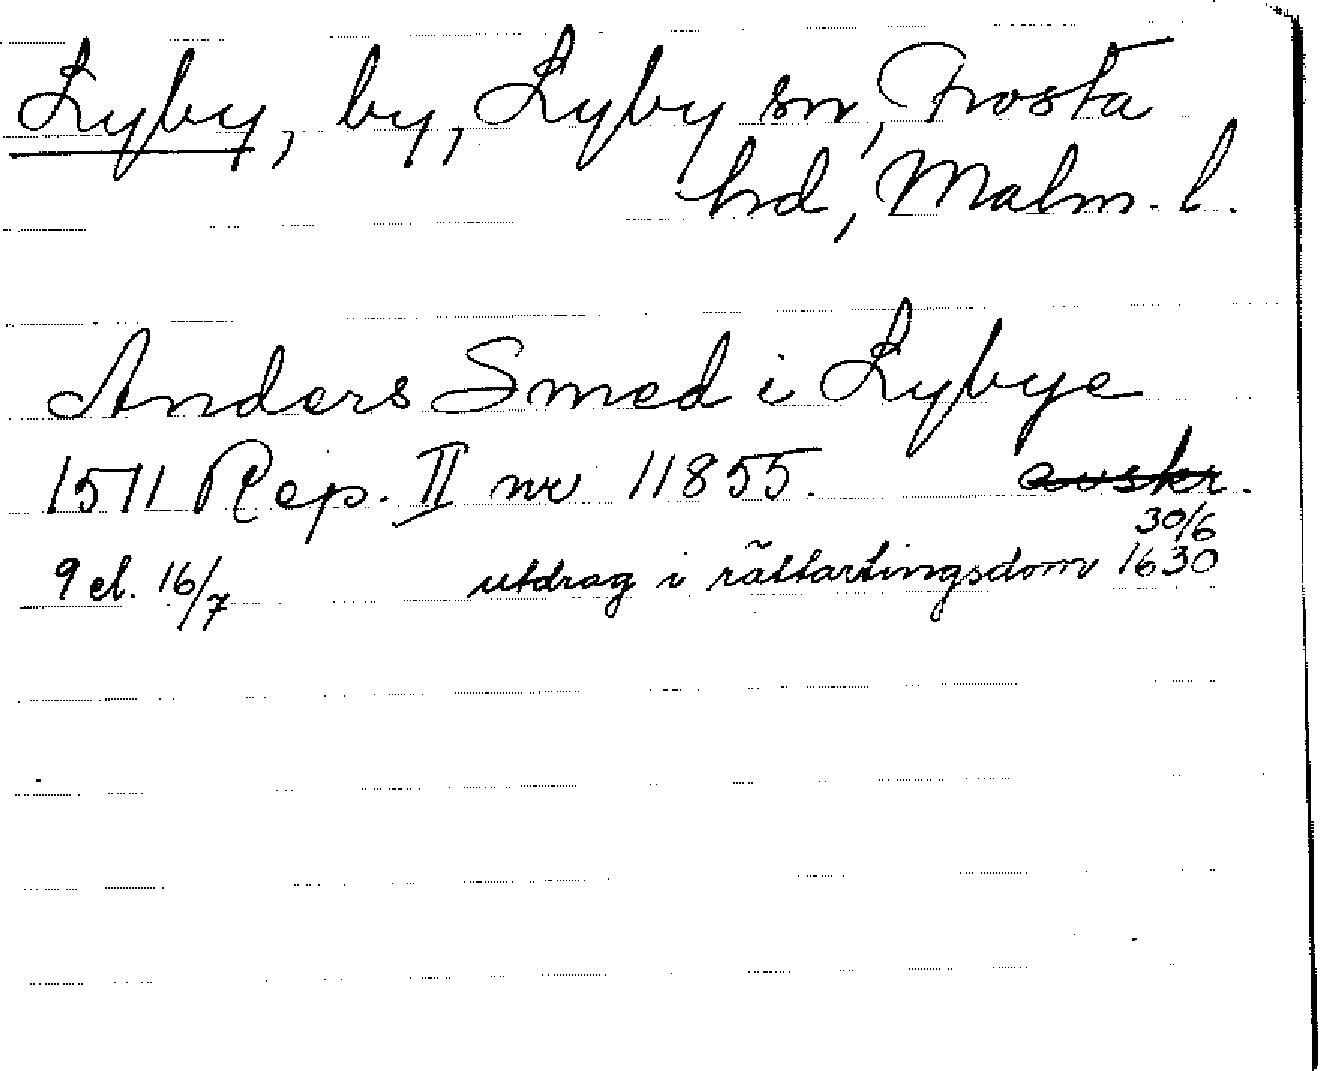 Lyby, by, Lyby sn, Frosta
hd, Malm. l.
Anders Smed i Lybye
1511 Rep. II nr 11855. avskr.
30/6
9 el. 16/7 utdrag i rättartingsdom 1630